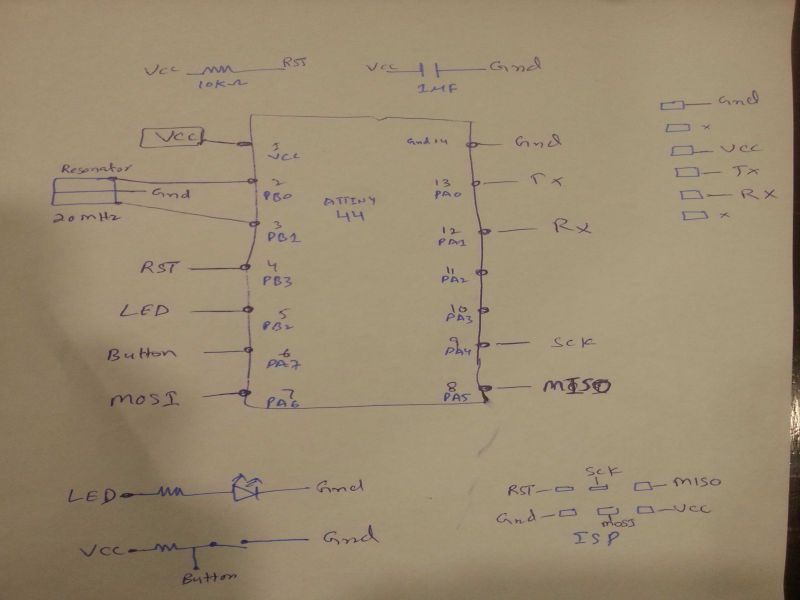 Vcc RST
10KΩ
Vcc Gnd
1MF
Gnd
x
Vcc
Tx
RX
x
Vcc
Resonator
Gnd
20MHz
RST
LED
Button
MOSI
1
VCC
2
PB0
3
PB1
4
PB3
5
PB2
6
PA7
7
PA6
ATTINY
44
Gnd 14
13
PA0
12
PA1
11
PA2
10
PA3
9
PA4
8
PA5
Gnd
Tx
Rx
SCK
MISO
LED Gnd
Vcc Gnd
Button
SCK
RST MISO
Gnd Vcc
MOSI
ISP